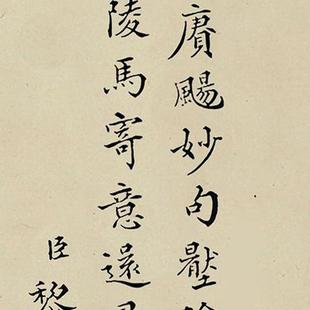 賡颺妙句壓
陵馬寄意還
臣黎